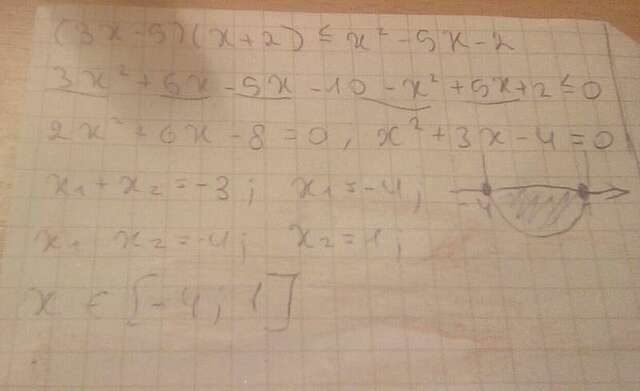 (3x-5)(x+2) ≤ x² - 5x - 2
3x² + 6x - 5x - 10 - x² + 5x + 2 ≤ 0
2x² + 6x - 8 = 0, x² + 3x - 4 = 0
x₁ + x₂ = -3; x₁ = -4;
-4 1
x₁ x₂ = -4; x₂ = 1;
x ∈ [-4; 1]